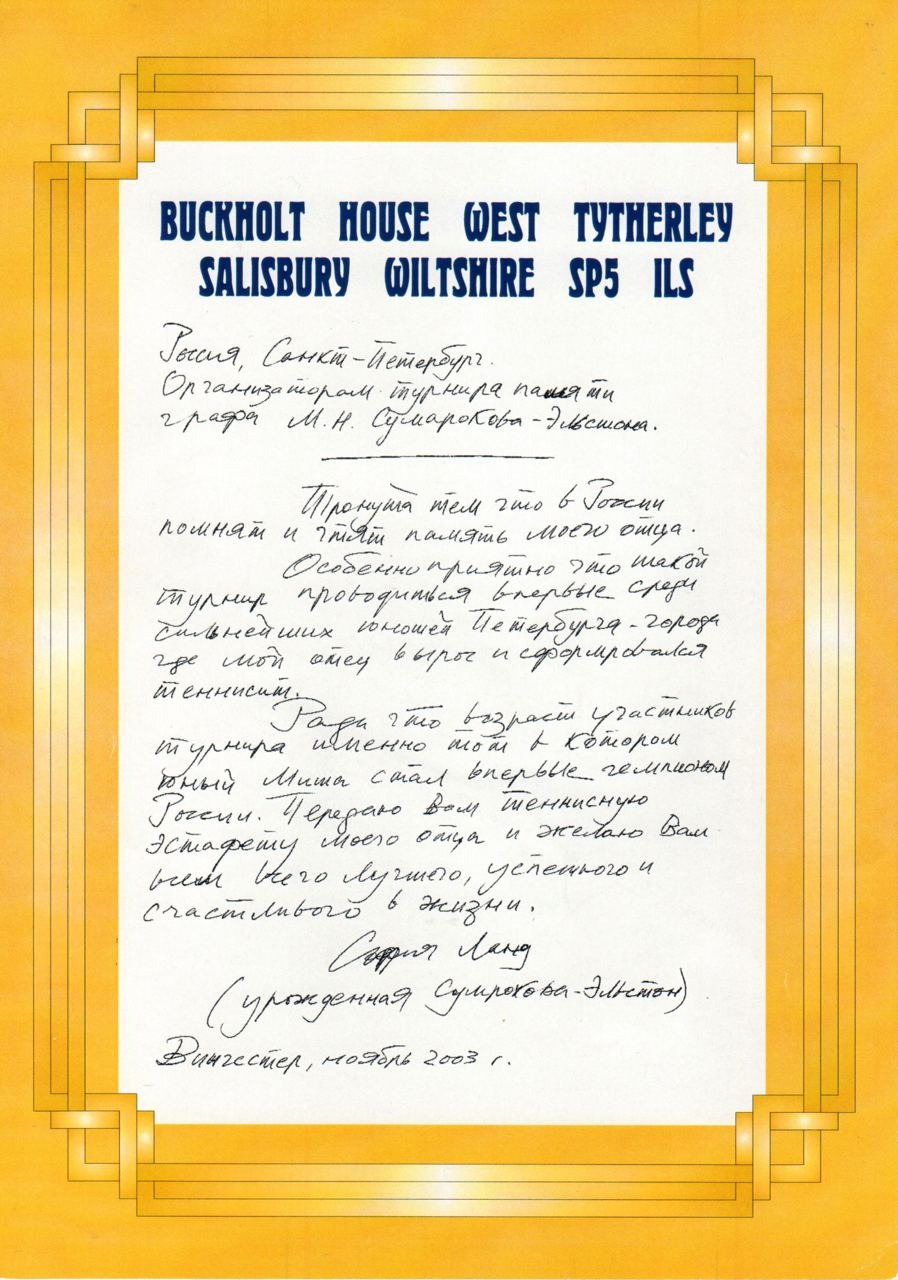 BUCKHOLT HOUSE WEST TYTHERLEY
SALISBURY WILTSHIRE SP5 ILS
Россия, Санкт-Петербург.
Организаторам турнира памяти
графа М.Н. Сумарокова-Эльстона.
Тронута тем что в России
помнят и чтят память моего отца.
Особенно приятно что такой
турнир проводиться впервые среди
сильнейших юношей Петербурга-города
где мой отец вырос и сформировался
теннисит.
Рада что возраст участников
турнира именно тот в котором
юный Миша стал впервые чемпионом
России. Передаю Вам теннисную
эстафету моего отца и желаю Вам
всем всего лучшего, успешного и
счастливого в жизни.
София Ланд
(урожденная Сумрокова-Эльстон)
Винчестер, ноябрь 2003 г.